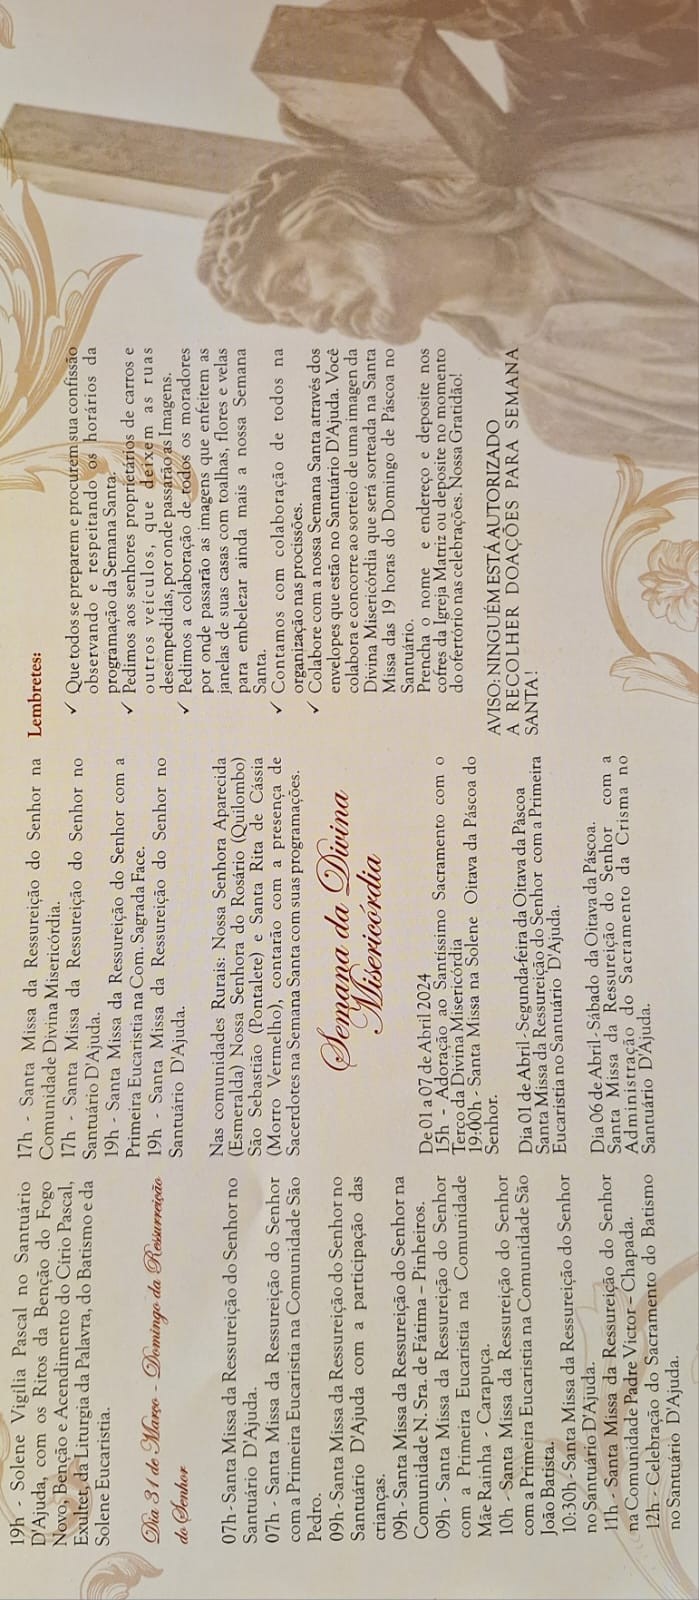 19h - Solene Vigília Pascal no Santuário
D'Ajuda, com os Ritos da Benção do Fogo
Novo, Benção e Acendimento do Círio Pascal,
Exultet, da Liturgia da Palavra, do Batismo e da
Solene Eucaristia.
Dia 31 de Março - Domingo da Ressurreição
do Senhor
07h - Santa Missa da Ressureição do Senhor no
Santuário D'Ajuda.
07h - Santa Missa da Ressureição do Senhor
com a Primeira Eucaristia na Comunidade São
Pedro.
09h - Santa Missa da Ressureição do Senhor no
Santuário D'Ajuda com a participação das
crianças.
09h - Santa Missa da Ressureição do Senhor na
Comunidade N. Sra. de Fátima – Pinheiros.
09h - Santa Missa da Ressureição do Senhor
com a Primeira Eucaristia na Comunidade
Mãe Rainha - Carapuça.
10h - Santa Missa da Ressureição do Senhor
com a Primeira Eucaristia na Comunidade São
João Batista.
10:30h - Santa Missa da Ressureição do Senhor
no Santuário D'Ajuda.
11h - Santa Missa da Ressureição do Senhor
na Comunidade Padre Victor – Chapada.
12h - Celebração do Sacramento do Batismo
no Santuário D'Ajuda.
17h - Santa Missa da Ressureição do Senhor na
Comunidade Divina Misericórdia.
17h - Santa Missa da Ressureição do Senhor no
Santuário D'Ajuda.
19h - Santa Missa da Ressureição do Senhor com a
Primeira Eucaristia na Com. Sagrada Face.
19h - Santa Missa da Ressureição do Senhor no
Santuário D'Ajuda.
Nas comunidades Rurais: Nossa Senhora Aparecida
(Esmeralda) Nossa Senhora do Rosário (Quilombo)
São Sebastião (Pontalete) e Santa Rita de Cássia
(Morro Vermelho), contarão com a presença de
Sacerdotes na Semana Santa com suas programações.
Semana da Divina
Misericórdia
De 01 a 07 de Abril 2024
15h - Adoração ao Santíssimo Sacramento com o
Terço da Divina Misericórdia
19:00h - Santa Missa na Solene Oitava da Páscoa do
Senhor.
Dia 01 de Abril - Segunda-feira da Oitava da Páscoa
Santa Missa da Ressureição do Senhor com a Primeira
Eucaristia no Santuário D'Ajuda.
Dia 06 de Abril - Sábado da Oitava da Páscoa.
Santa Missa da Ressureição do Senhor com a
Administração do Sacramento da Crisma no
Santuário D'Ajuda.
Lembretes:
✓ Que todos se preparem e procurem sua confissão
observando e respeitando os horários da
programação da Semana Santa.
✓ Pedimos aos senhores proprietários de carros e
outros veículos, que deixem as ruas
desempedidas, por onde passarão as Imagens.
✓ Pedimos a colaboração de todos os moradores
por onde passarão as imagens que enfeitem as
janelas de suas casas com toalhas, flores e velas
para embelezar ainda mais a nossa Semana
Santa.
✓ Contamos com colaboração de todos na
organização nas procissões.
✓ Colabore com a nossa Semana Santa através dos
envelopes que estão no Santuário D'Ajuda. Você
colabora e concorre ao sorteio de uma imagen da
Divina Misericórdia que será sorteada na Santa
Missa das 19 horas do Domingo de Páscoa no
Santuário.
Prencha o nome e endereço e deposite nos
cofres da Igreja Matriz ou deposite no momento
do ofertório nas celebrações. Nossa Gratidão!
AVISO: NINGUÉM ESTÁ AUTORIZADO
A RECOLHER DOAÇÕES PARA SEMANA
SANTA!